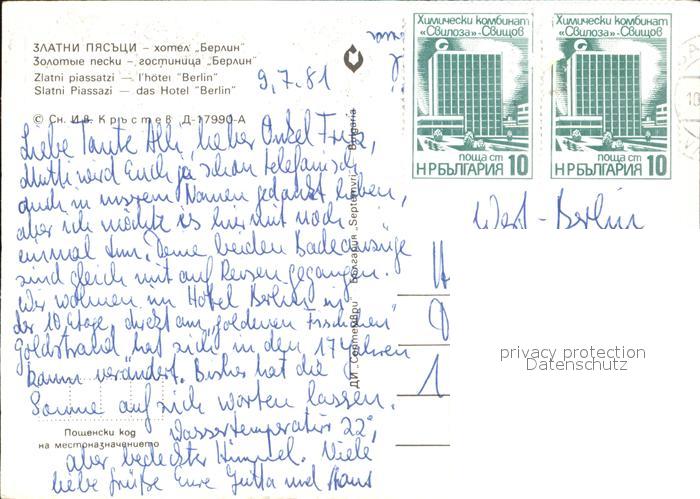 ЗЛАТНИ ПЯСЪЦИ – хотел „Берлин“
Золотые пески – гостиница „Берлин“
Zlatni piassatzi – l'hôtel "Berlin"
Slatni Piassazi – das Hotel "Berlin"
© Сн. Ив. Кръстев Д-17990-А
9.7.81
Liebe Tante Alli, lieber Onkel Fritz,
Mutti wird Euch ja schon telefonisch
auch in unserem Namen gedankt haben,
aber ich möchte es hiermit noch
einmal tun. Deine beiden Badeanzüge
sind gleich mit auf Reisen gegangen.
Wir wohnen im Hotel Berlin in
der 10. Etage, direkt am „goldenen
Goldstrand hat sich in den 17 Jahren
kaum verändert. Bisher hat die
Sonne auf sich warten lassen.
Wassertemperatur 22°,
aber bedeckter Himmel. Viele
liebe Grüße Eure Jutta und Hans
Пощенски код
на местоназначението
ДИ „Септември“ България „Septemvri“ Bulgaria
Химически комбинат
«Свилоза»-Свищов
поща ст
НРБЪЛГАРИЯ 10
Химически комбинат
«Свилоза»-Свищов
поща ст
НРБЪЛГАРИЯ 10
West-Berlin
privacy protection
Datenschutz